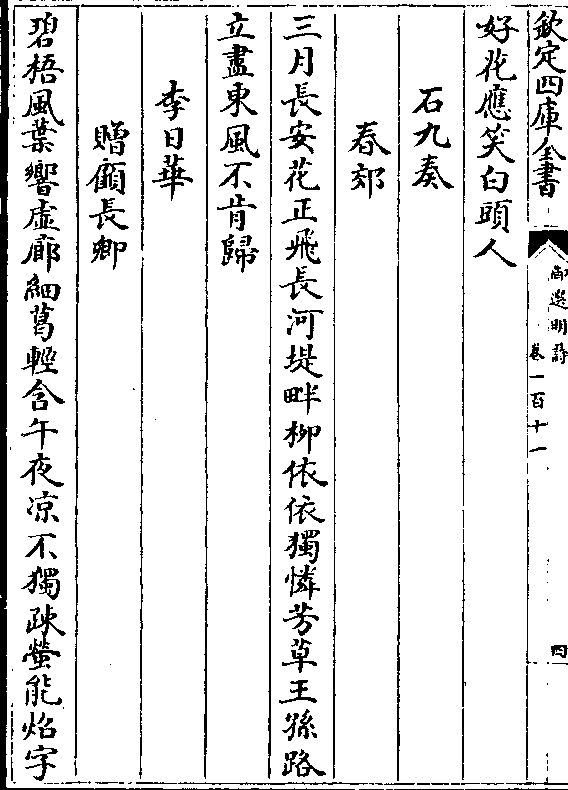 欽定四庫全書
御選明詩
卷一百十一
四
好花應笑白頭人
石九奏
春郊
三月長安花正飛長河堤畔柳依依獨憐芳草王孫路
立盡東風不肯歸
李日華
贈顧長卿
碧梧風葉響虛廊細葛輕含午夜凉不獨疎螢能炤字